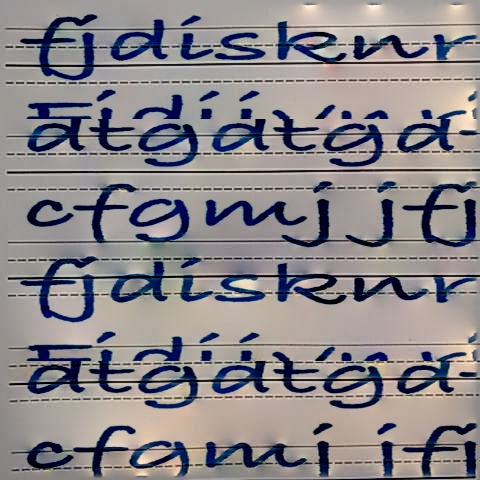 fjdisknr
atgatga-
cfgmj jfj
fjdisknr
atgatga-
cfgmj jfj